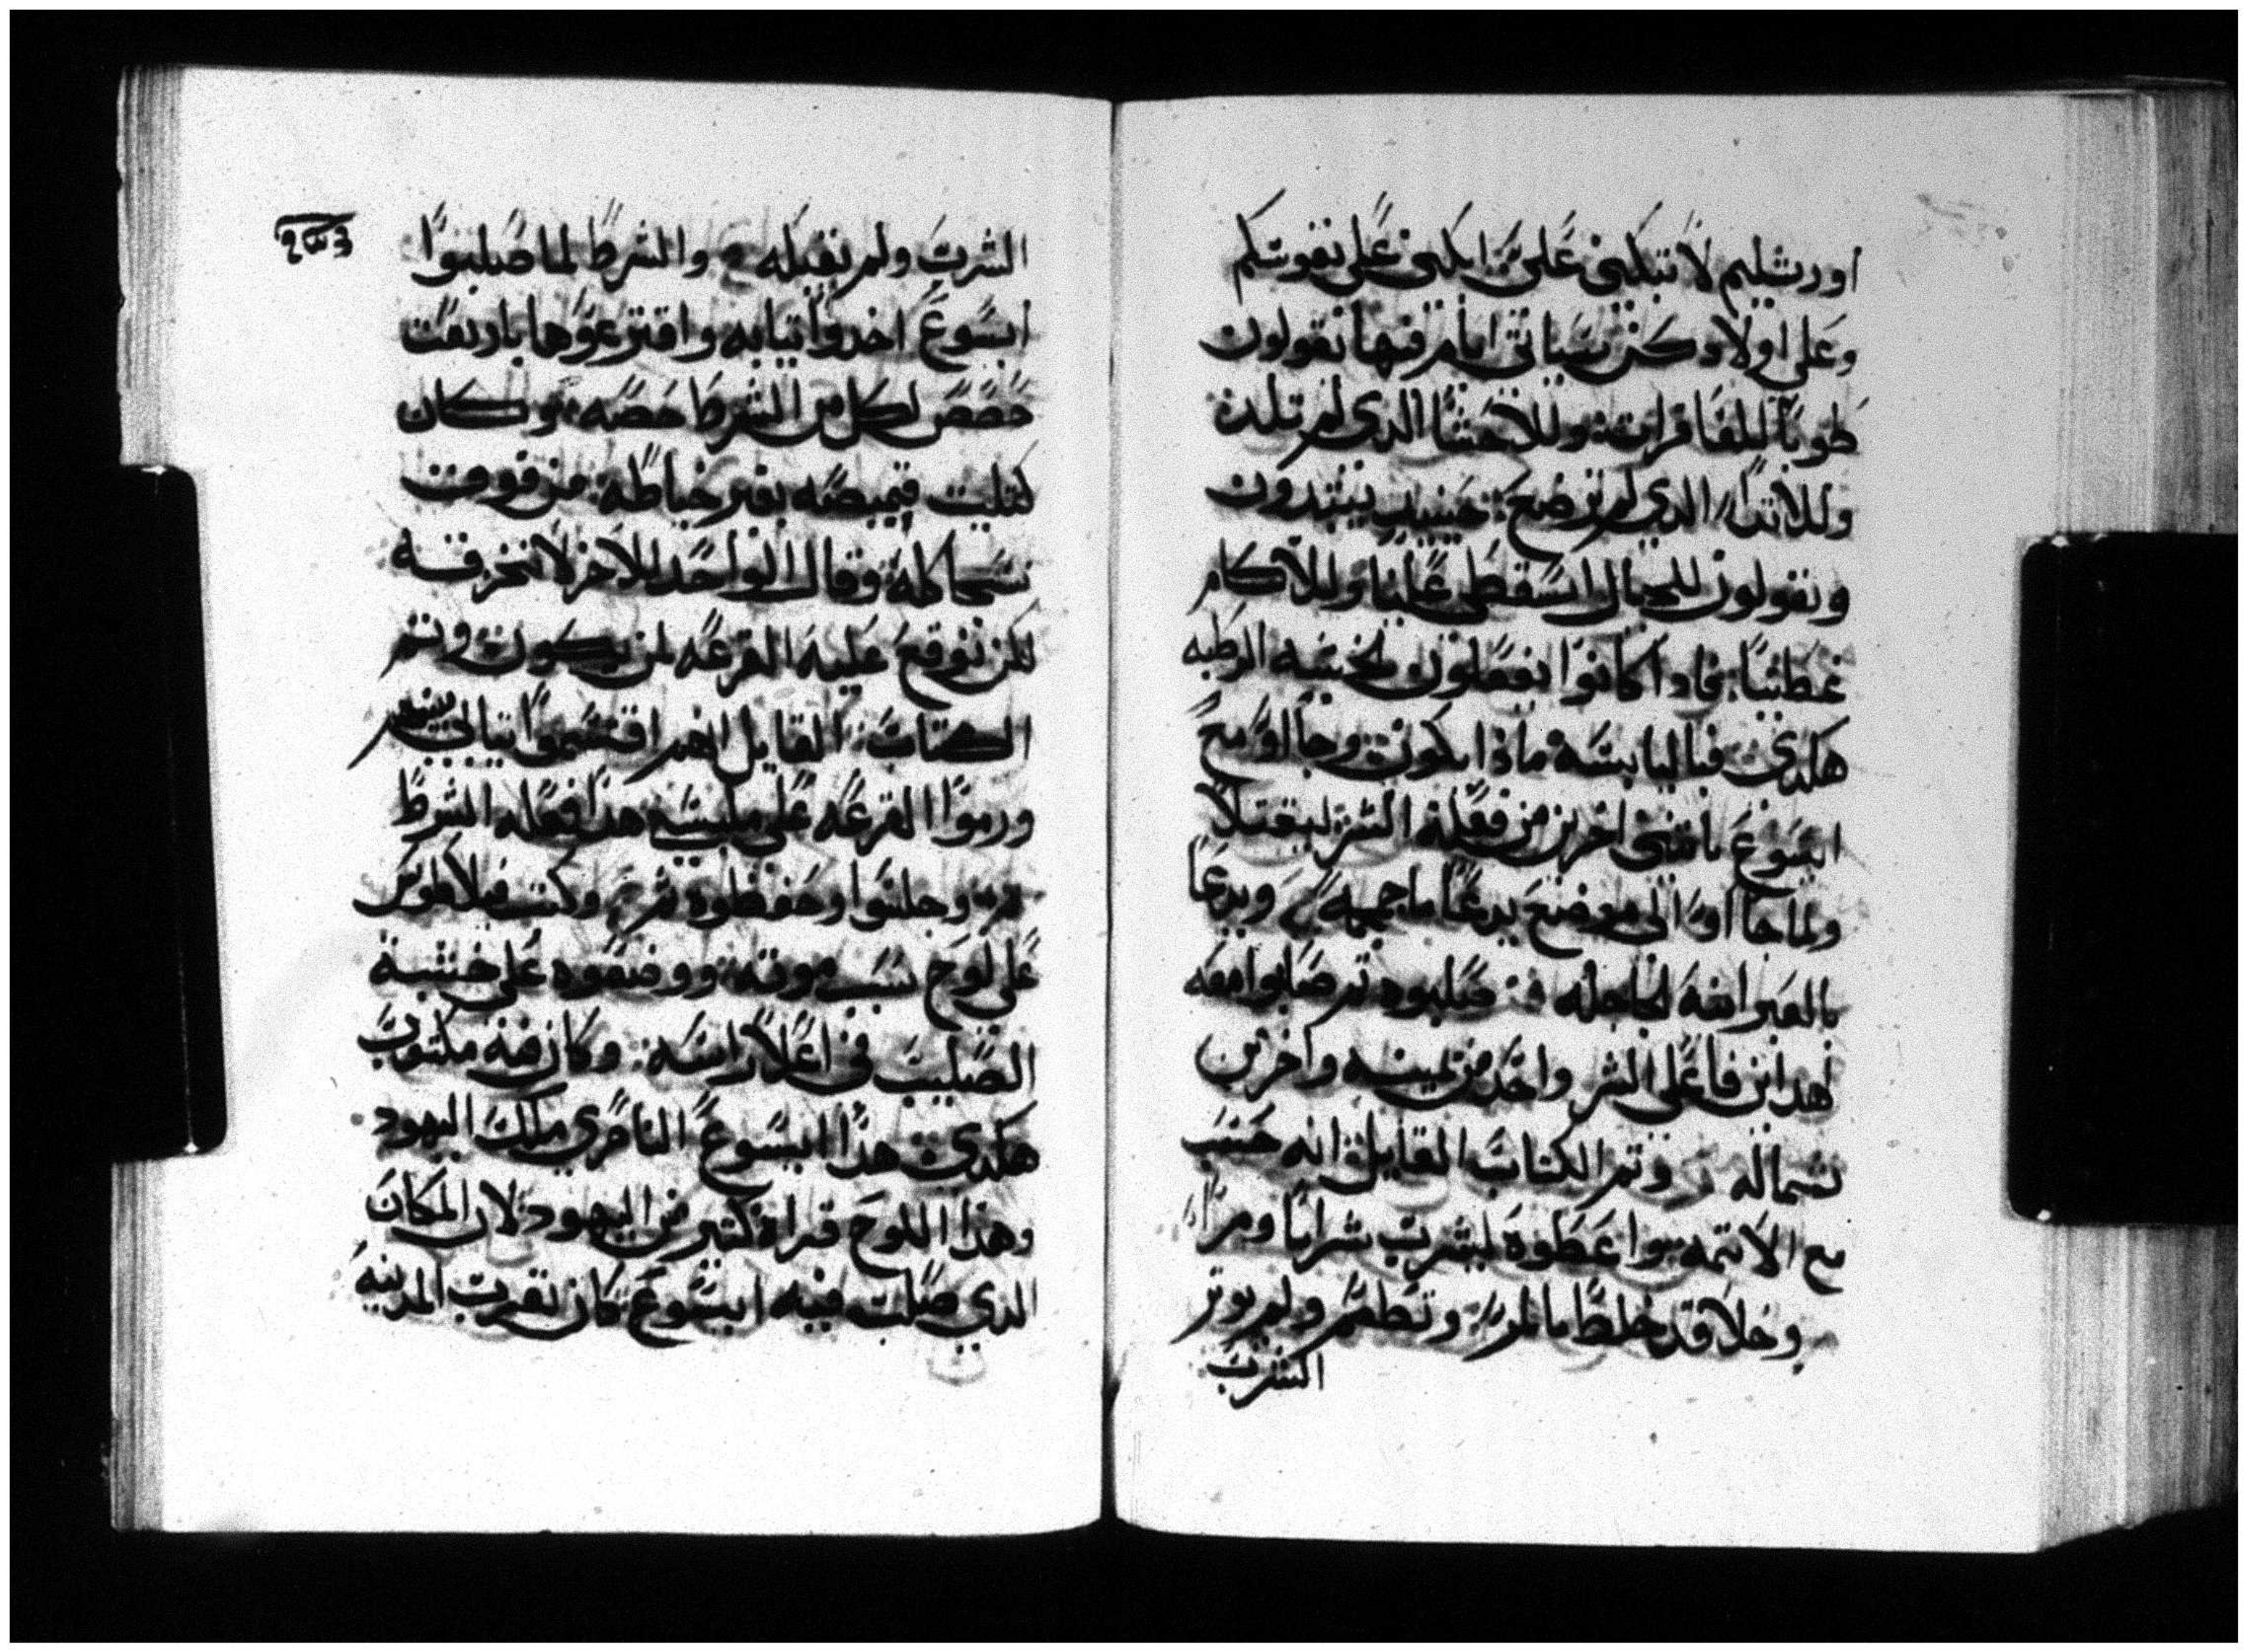 اورشليم لا تبكين علي ابكين علي نفوسكم
وعلي اولادكن ستاتي ايام فيها تقولون
طوبا للعاقرات وللاحشا الدي لم تلد
وللاتدا الدي لم ترضع حينيد يبتدون
ويقولون للجبال اسقطي علينا وللاكام
غطينا فادا كانوا يفعلون بالخشبه الرطبه
هكدي فباليابسه مادا يكون وجااو مع
ايسوع باتنين اخرين من فعلة الشر ليقتلا
ولما جااوا الي موضع يدعا ماجمجمه ويدعا
بالعبرانية الجاجله صلبوه تم صلبوا معه
هدان فاعلي الشر واحد من يمينه واخر من
شماله وتم الكتاب القايل انه حسب
مع الاتمه واعطوه ليشرب شرابا ومرا
وخلا قد خلط بالمر وتطعم ولم يوتر
الشرب
الشرب ولم يقبله والشرط لما صلبوا
ايسوع اخدوا تيابه واقترعوها باربعت
حصص لكل من الشرط حصه وكان
كتليت قميصه بغير خياطه من فوقت
نسجا كله وقال الواحد للاخر لا نخرقه
لكن نوقع عليه القرعه لمن يكون وتم
الكتاب القايل انهم اقتسموا تيابي بينهم
ورموا القرعه علي ملبسي هدا فعله الشرط
وجلسوا وحفظوه تم وكتب فيلاطوس
علي لوح سبب موته ووضعوه علي خشبة
الصليب في اعلا راسه وكان فيه مكتوب
هكدي هدا ايسوع الناصري ملك اليهود
وهدا اللوح قراه كتير من اليهود لان المكان
الدي صلب فيه ايسوع كان بقرب المدينه